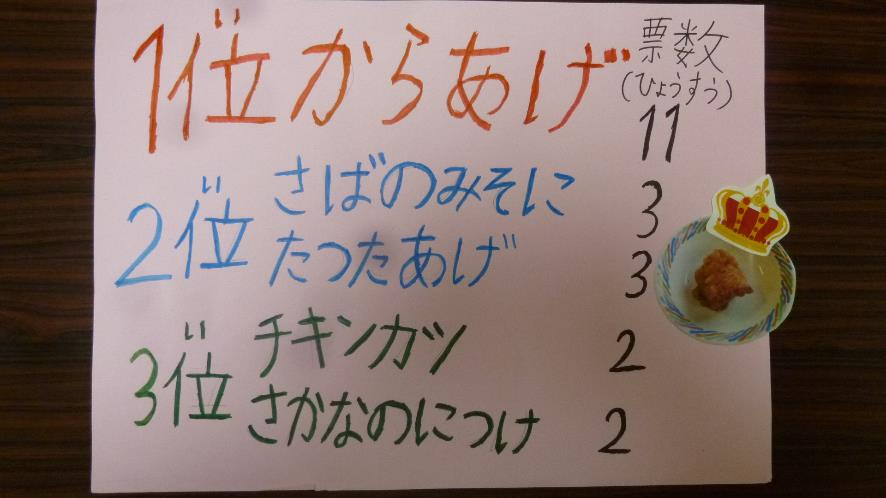 1位からあげ 票数
い (ひょうすう)
11
2位 さばのみそに 3
い たつたあげ 3
3位 チキンカツ 2
い さかなのにつけ 2